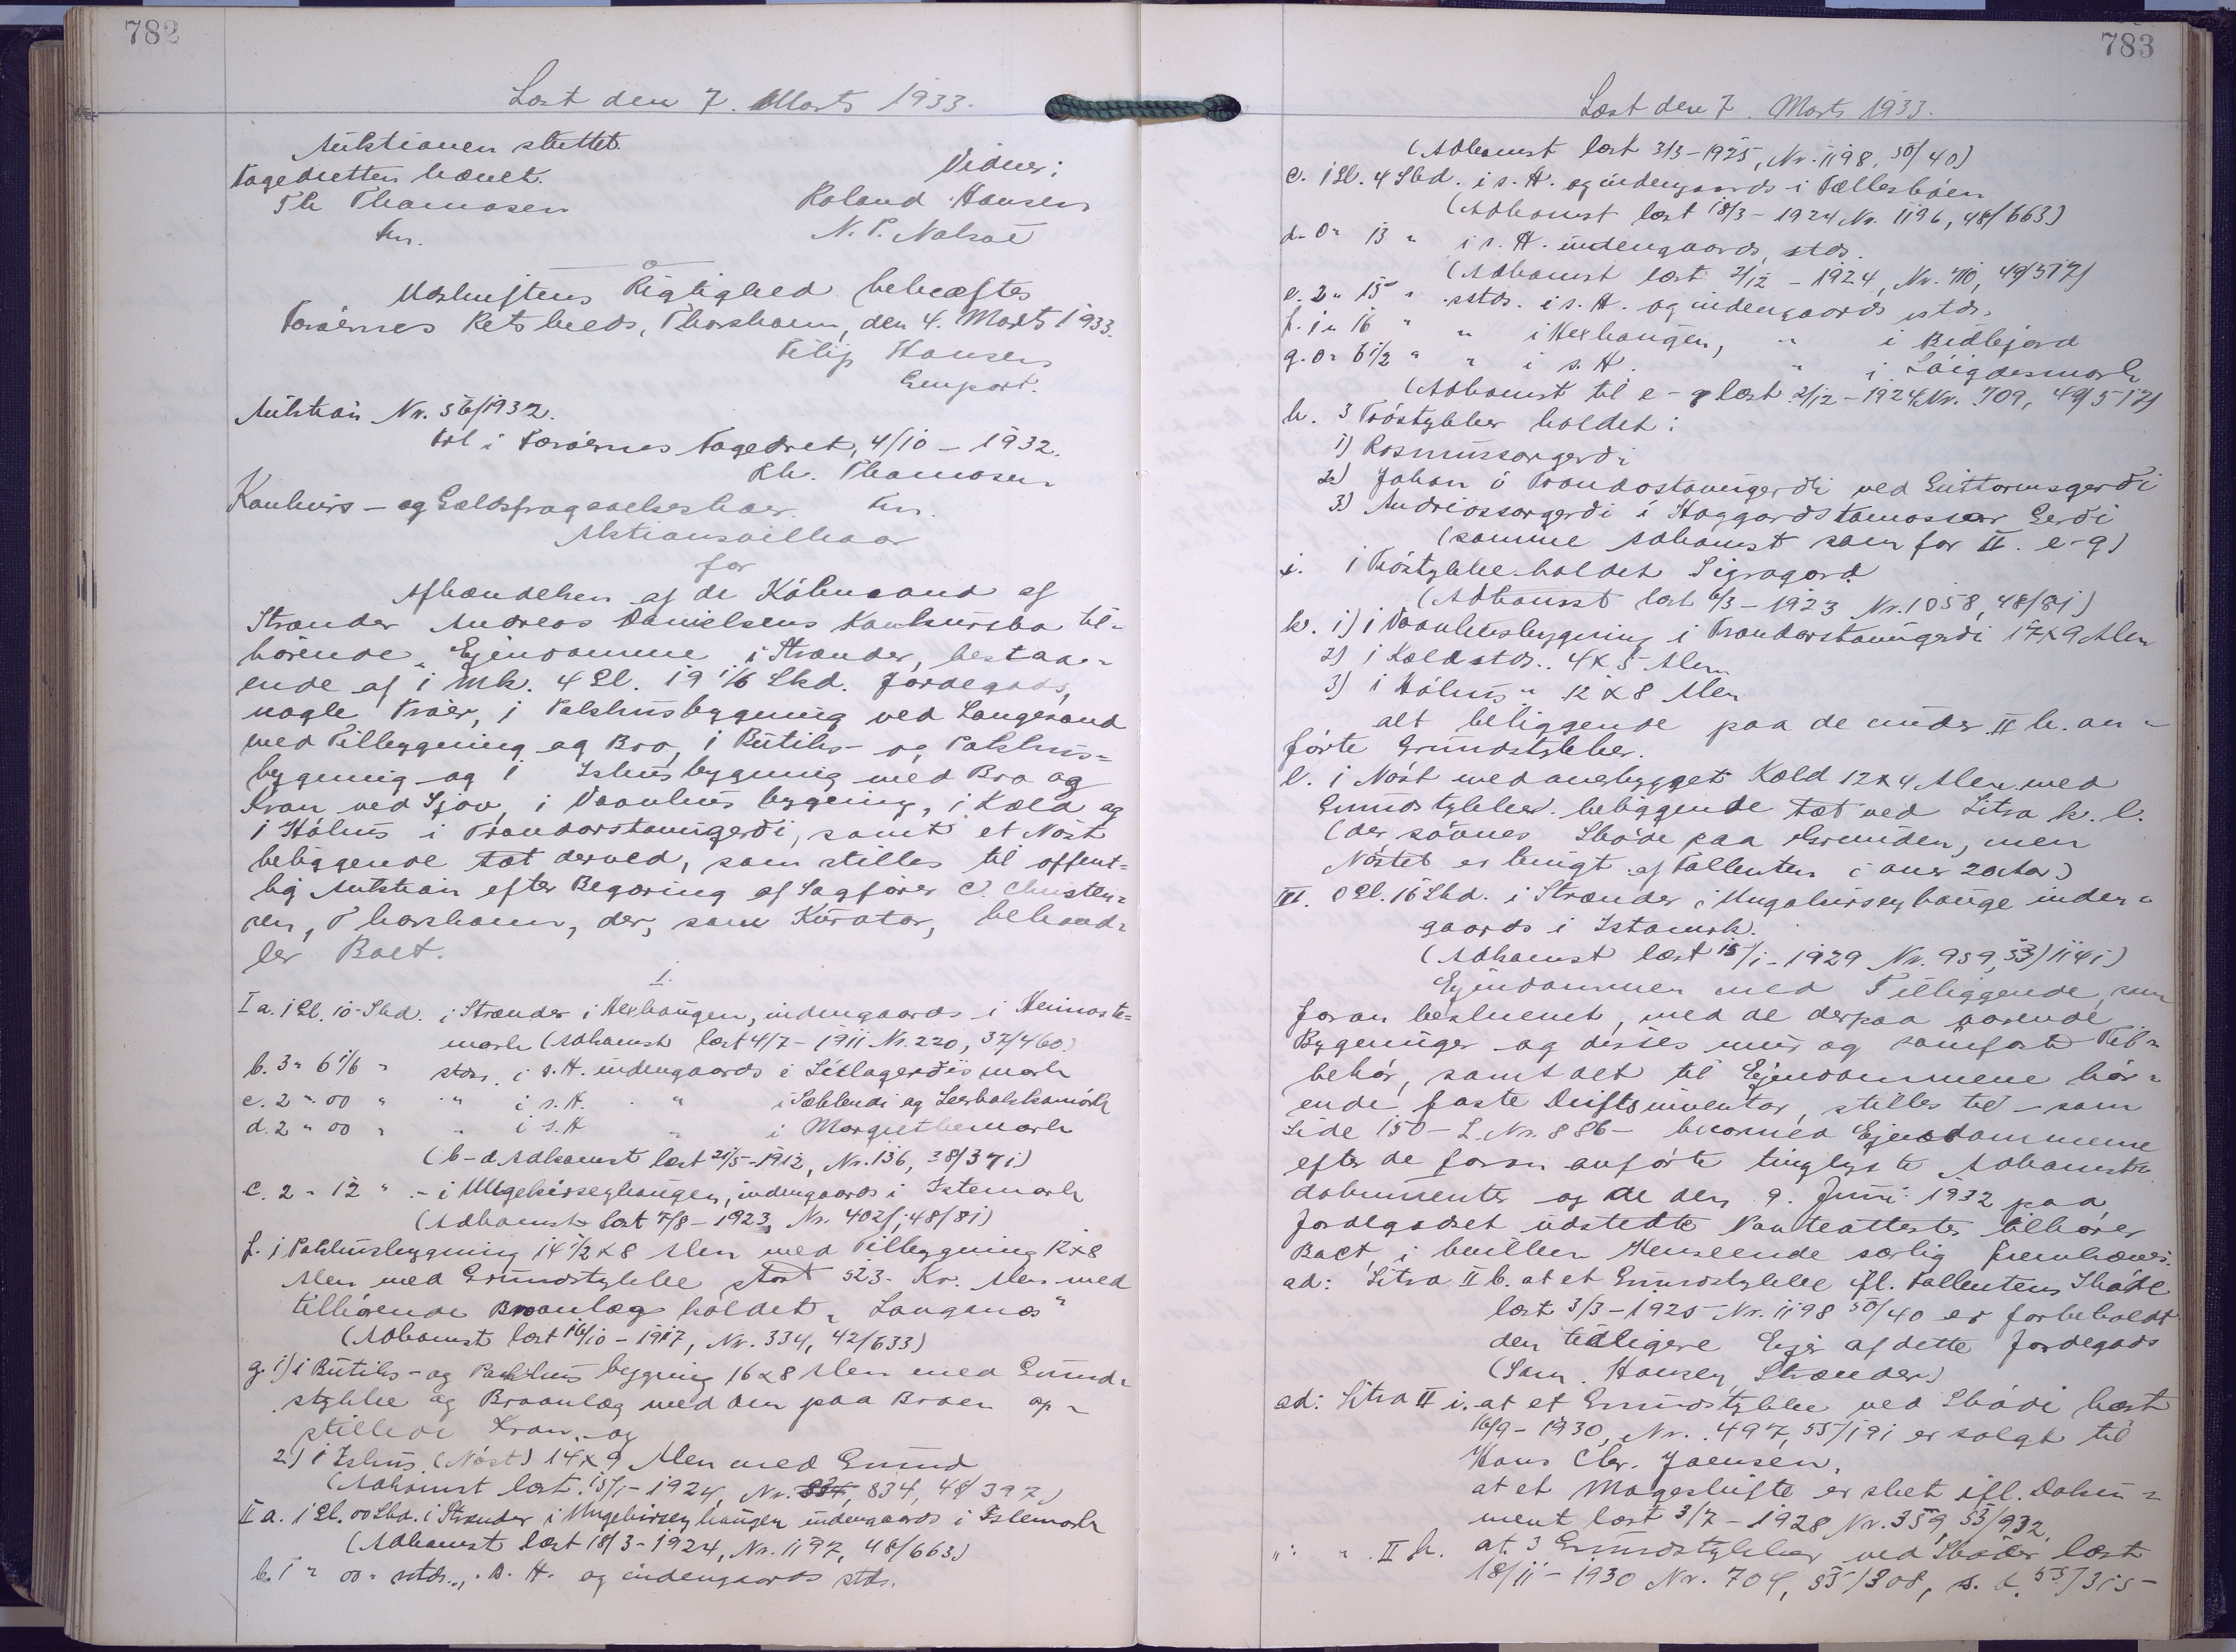 782
Læst den 7. Marts 1933.
Auktionen sluttet.
Fogedretten hævet.
Vidner:
Rh Thomasen
Roland Hansen
fm.
N. P. Nolsøe
Udskriftens Rigtighed bekræftes
Færøernes Retskreds, Thorshavn, den 4. Marts 1933.
Filip Hansen
Exp.
Auktion Nr. 56/1932.
Frl i Færøernes Fogedret, 4/10 - 1932.
Rh. Thomasen
Konkurs- og Gældsfragaaelsesboer. fm.
Auktionsvilkaar
for
Afhændelsen af de Købmand af
Strænder Andreas Danielsens Konkursbo til-
hørende Ejendomme i Strænder, bestaa-
ende af 1 Mk. 4 Gl. 19 1/6 Skd. Jordegods,
nogle Trøer, 1 Pakhusbygning ved Langesand
med Tilbygning og Bro, 1 Butiks- og Pakhus-
bygning og 1 Ishusbygning med Bro og
Kran ved Sjov, 1 Vaanhus bygning, 1 Kæld og
1 Hølus i Trondarstovugerdi, samt et Nøst
beliggende tæt derved, som stilles til offent-
lig Auktion efter Begæring af Sagfører C. Christen-
sen, Thorshavn, der, som Kurator, behand-
ler Boet.
1.
I a. 1 Gl. 10 Skd. i Strænder i Hexhaugen, indengaards i Heimaste-
mark (Adkomst læst 4/7 - 1911 Nr. 220, 37/460)
b. 3 " 6 1/6 " stds. i s. H. indengaards i Litlagerdismark
c. 2 " 00 " " i s. H. " i Sæklendi og Leerbakkamørk
d. 2 " 00 " " i s. H " i Margrethemark
(b-d Adkomst læst 21/5 - 1912, Nr. 136, 38/371)
e. 2 " 12 " - i Ungekirseyhaugen, indengaards i Istemark
(Adkomst læst 7/8 - 1923, Nr. 402, 48/81)
f. 1 Pakhusbygning 14 1/2 x 8 Alen med Tilbygning 12 x 8
Alen med Grundstykke stort 523 Kv. Alen med
tilhørende Broanlæg kaldet "Langanes"
(Adkomst læst 16/10 - 1917, Nr. 334, 42/633)
g. 1) 1 Butiks- og Pakhus bygning 16 x 8 Alen med Grund-
stykke og Broanlæg med den paa Broen op-
stillede Kran, og
2) 1 Ishus (Nøst) 14 x 9 Alen med Grund
(Adkomst læst 15/1 - 1924, Nr. 834, 48/397)
II a. 1 Gl. 00 Skd. i Strænder i Ungekirseyhaugen indengaards i Istemark
(Adkomst læst 18/3 - 1924, Nr. 1197, 48/663)
b. 1 " 00 " stds., s. H. og indengaards stds.
783
Læst den 7. Marts 1933.
(Adkomst læst 3/3 - 1925, Nr. 1198, 50/40)
c. 1 Gl. 4 Skd. i s. H. og indengaards i Fællesbøen
(Adkomst læst 18/3 - 1924 Nr. 1196, 48/663)
d. 0 " 13 " i s. H. indengaards, stds.
(Adkomst læst 2/12 - 1924, Nr. 710, 49/517)
e. 2 " 15 " stds. i s. H. og indengaards stds.
f. 1 " 16 " " i Hexhaugen, " i Bedlejord
g. 0 " 6 1/2 " " i s. H. " i Løigdesmark
(Adkomst til e - g læst 2/12 - 1924 Nr. 709, 49/517)
h. 3 Trøstykker kaldet:
1) Rasmussargerdi
2) Johan ó Trondastovugerdi ved Guttormsgerdi
3) Andriassargerdi i Haggardstomassar Gerdi
(samme Adkomst som for II. e-g)
i. 1 Trøstykke kaldet Sigragerd
(Adkomst læst 6/3 - 1923 Nr. 1058, 48/81)
k. 1) 1 Vaanhusbygning i Trondarstovugerdi 17 x 9 Alen
2) 1 Kæld stds. 4 x 5 Alen
3) 1 Hølus " 12 x 8 Alen
alt beliggende paa de under II h. an-
førte Grundstykker.
l. 1 Nøst med overbygget Kæld 12 x 4 Alen med
Grundstykker beliggende tæt ved Litra k. l.
(der savnes Skøde paa Grunden, men
Nøstet er brugt af Fallenten i over 20 Aar)
III. 0 Gl. 16 Skd. i Strænder i Ungakirseyhauge inden-
gaards i Istamrk.
(Adkomst læst 15/1 - 1929 Nr. 959, 53/1141)
Ejendommen med Tilliggende, som
foran beskrevet, med de derpaa værende
Bygninger og disses mur og sømfaste Til-
behør, samt det til Ejendommene hør-
ende faste Driftsinventar, stilles til - som
Side 150 - L. Nr. 886 - hvormed Ejendommene
efter de foran anførte tinglyste Adkomst-
dokumenter og de den 9. Juni 1932 paa
Jordegodset udstedte Panteattester tilhører
Boet, i hvilken Henseende særlig fremhæves:
ad: Litra II b. at et Grundstykke ifl. Fallentens Skøde
læst 3/3 - 1925 Nr. 1198 50/40 er forbeholdt
den tidligere Ejer af dette Jordegods
(Sam. Hansen, Strænder)
ad: Litra II i. at et Grundstykke ved Skøde læst
16/9 - 1930, Nr. 497, 55/191 er solgt til
Hans Chr. Joensen,
at et Mageskifte er sket ifl. Doku-
ment læst 3/7 - 1928 Nr. 359, 53/932.
" : " II h. at 3 Grundstykker ved Skøder læst
18/11 - 1930 Nr. 704, 55/308, s. d. 55/315